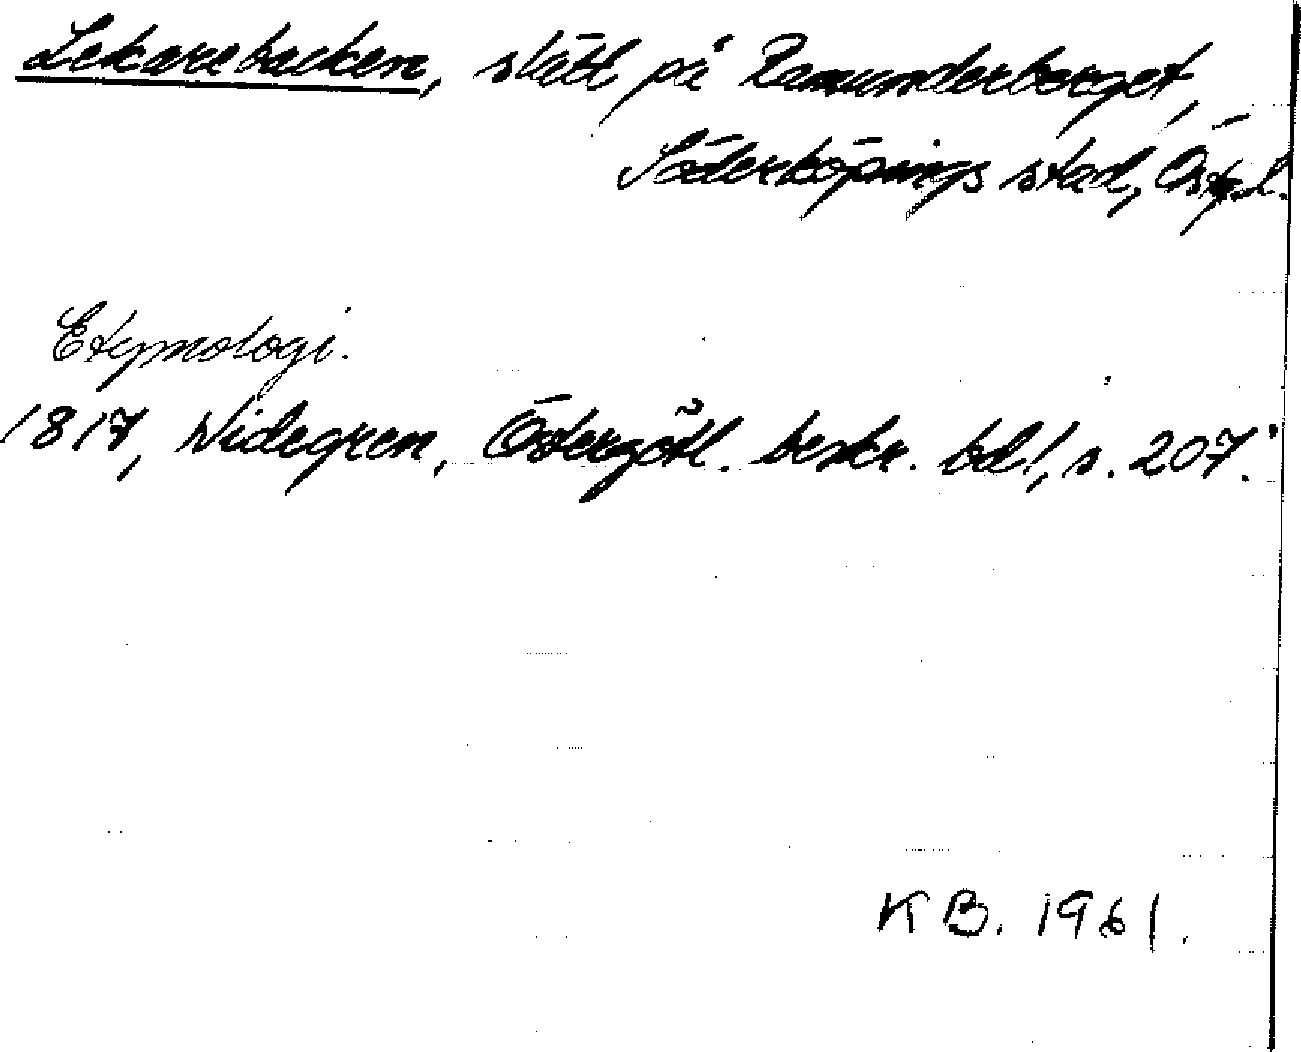 Lekarebacken, slätt på Ramunderberget,
Söderköpings stad, Östg.l.
Etymologi.
1817, Widegren, Östergötl. beskr. bd 1, s. 207.
KB. 1961.